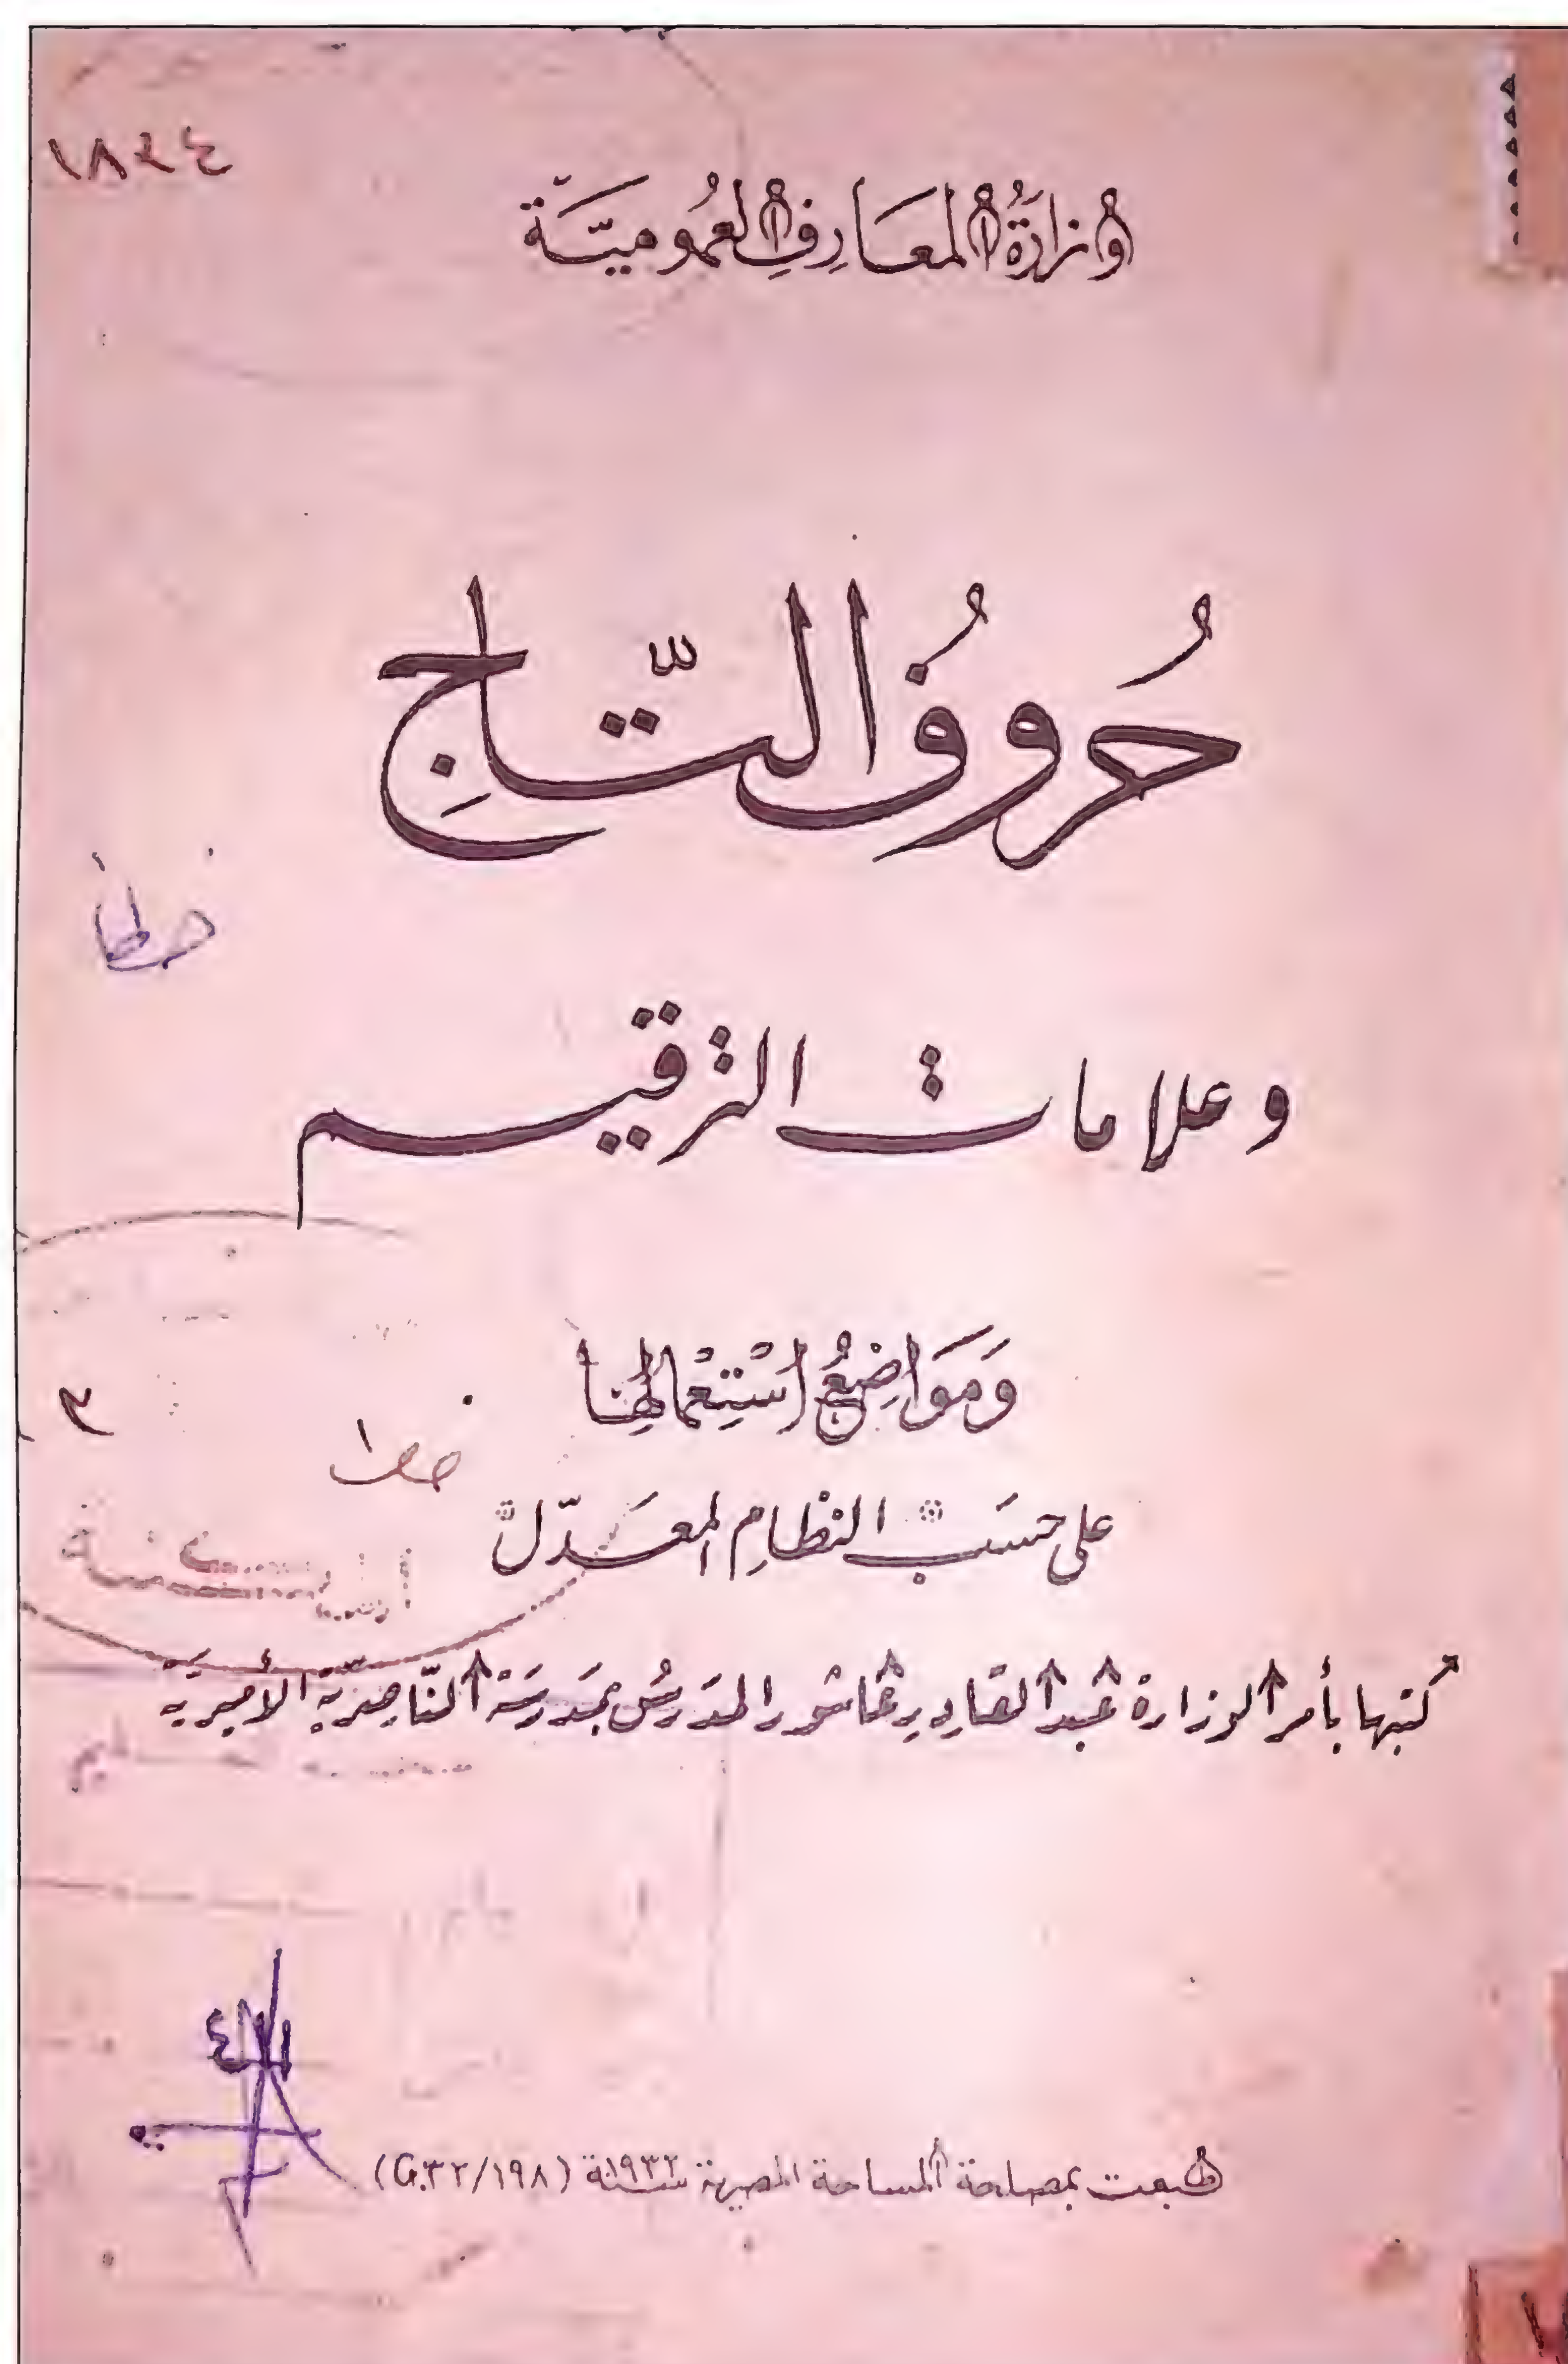 ١٨٢٤
وِزَارَةُ المعَارِفِ العُمُوميَّة
حُرُوفُ التَّاجِ
وعلامات الترقيم
وَمَوَاضِعُ اسْتِعْمالِهَا
على حسَب النظامِ المعَدّل
كتبها بأمر الوزارة عبد القادِر عاشور المدَرسُ بمَدرسَة النّاصِرِيّة الأميرَيه
طبعت بمصلحة المساحة المصرية سنة ١٩٣٢ (G.٣٢/١٩٨)